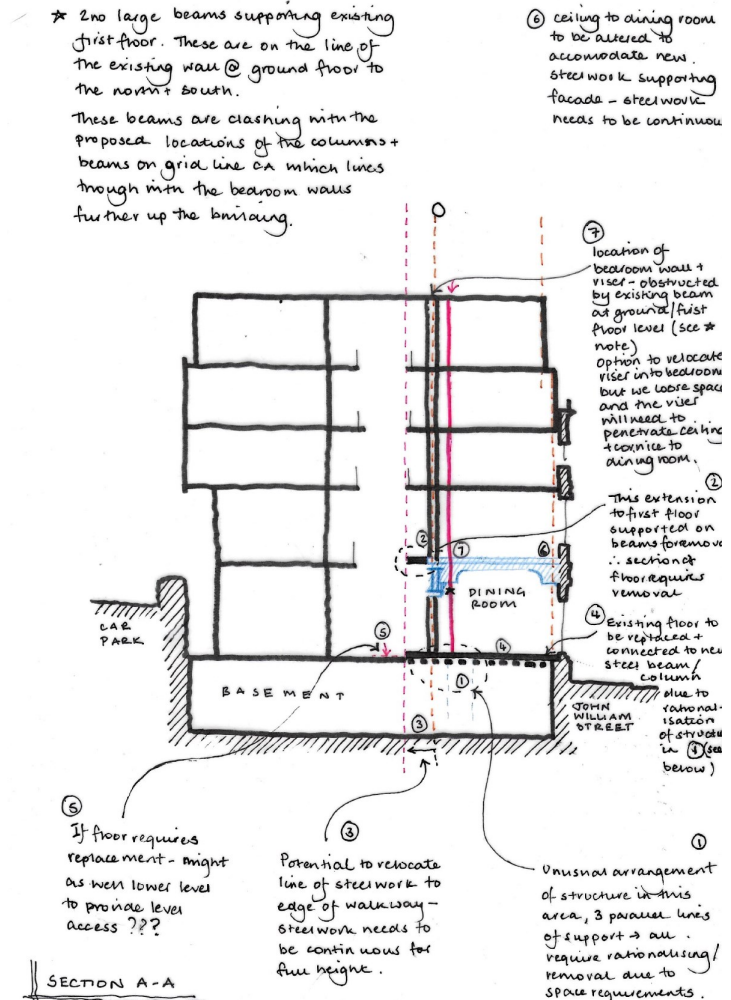 * 2no large beams supporting existing
first floor. These are on the line of
the existing wall @ ground floor to
the north + south.
These beams are clashing with the
proposed locations of the columns +
beams on grid line CA which lines
trough with the bedroom walls
further up the building.
⑥ ceiling to dining room
to be altered to
accomodate new.
steelwork supporting
facade - steelwork
needs to be continuou
⑦
location of
bedroom wall +
riser - obstructed
by existing beam
at ground/first
floor level (see *
note)
option to relocate
riser into bedroom
but we loose space
and the riser
will need to
penetrate ceiling
+ cornice to
dining room.
②
This extension
to first floor
supported on
beams for remova
∴ section of
floor requires
removal
② ⑦ ⑥
DINING
ROOM
*
④
Existing floor to
be replaced +
connected to new
steel beam/
column
due to
rational-
isation
of structu
in ① (see
below)
CAR
PARK
⑤ ④
①
BASEMENT
③
JOHN
WILLIAM
STREET
⑤
If floor requires
replacement - might
as well lower level
to provide level
access ???
③
Potential to relocate
line of steelwork to
edge of walkway -
steelwork needs to
be continuous for
full height.
①
Unusual arrangement
of structure in this
area, 3 parallel lines
of support → all.
require rationalising/
removal due to
space requirements.
SECTION A-A